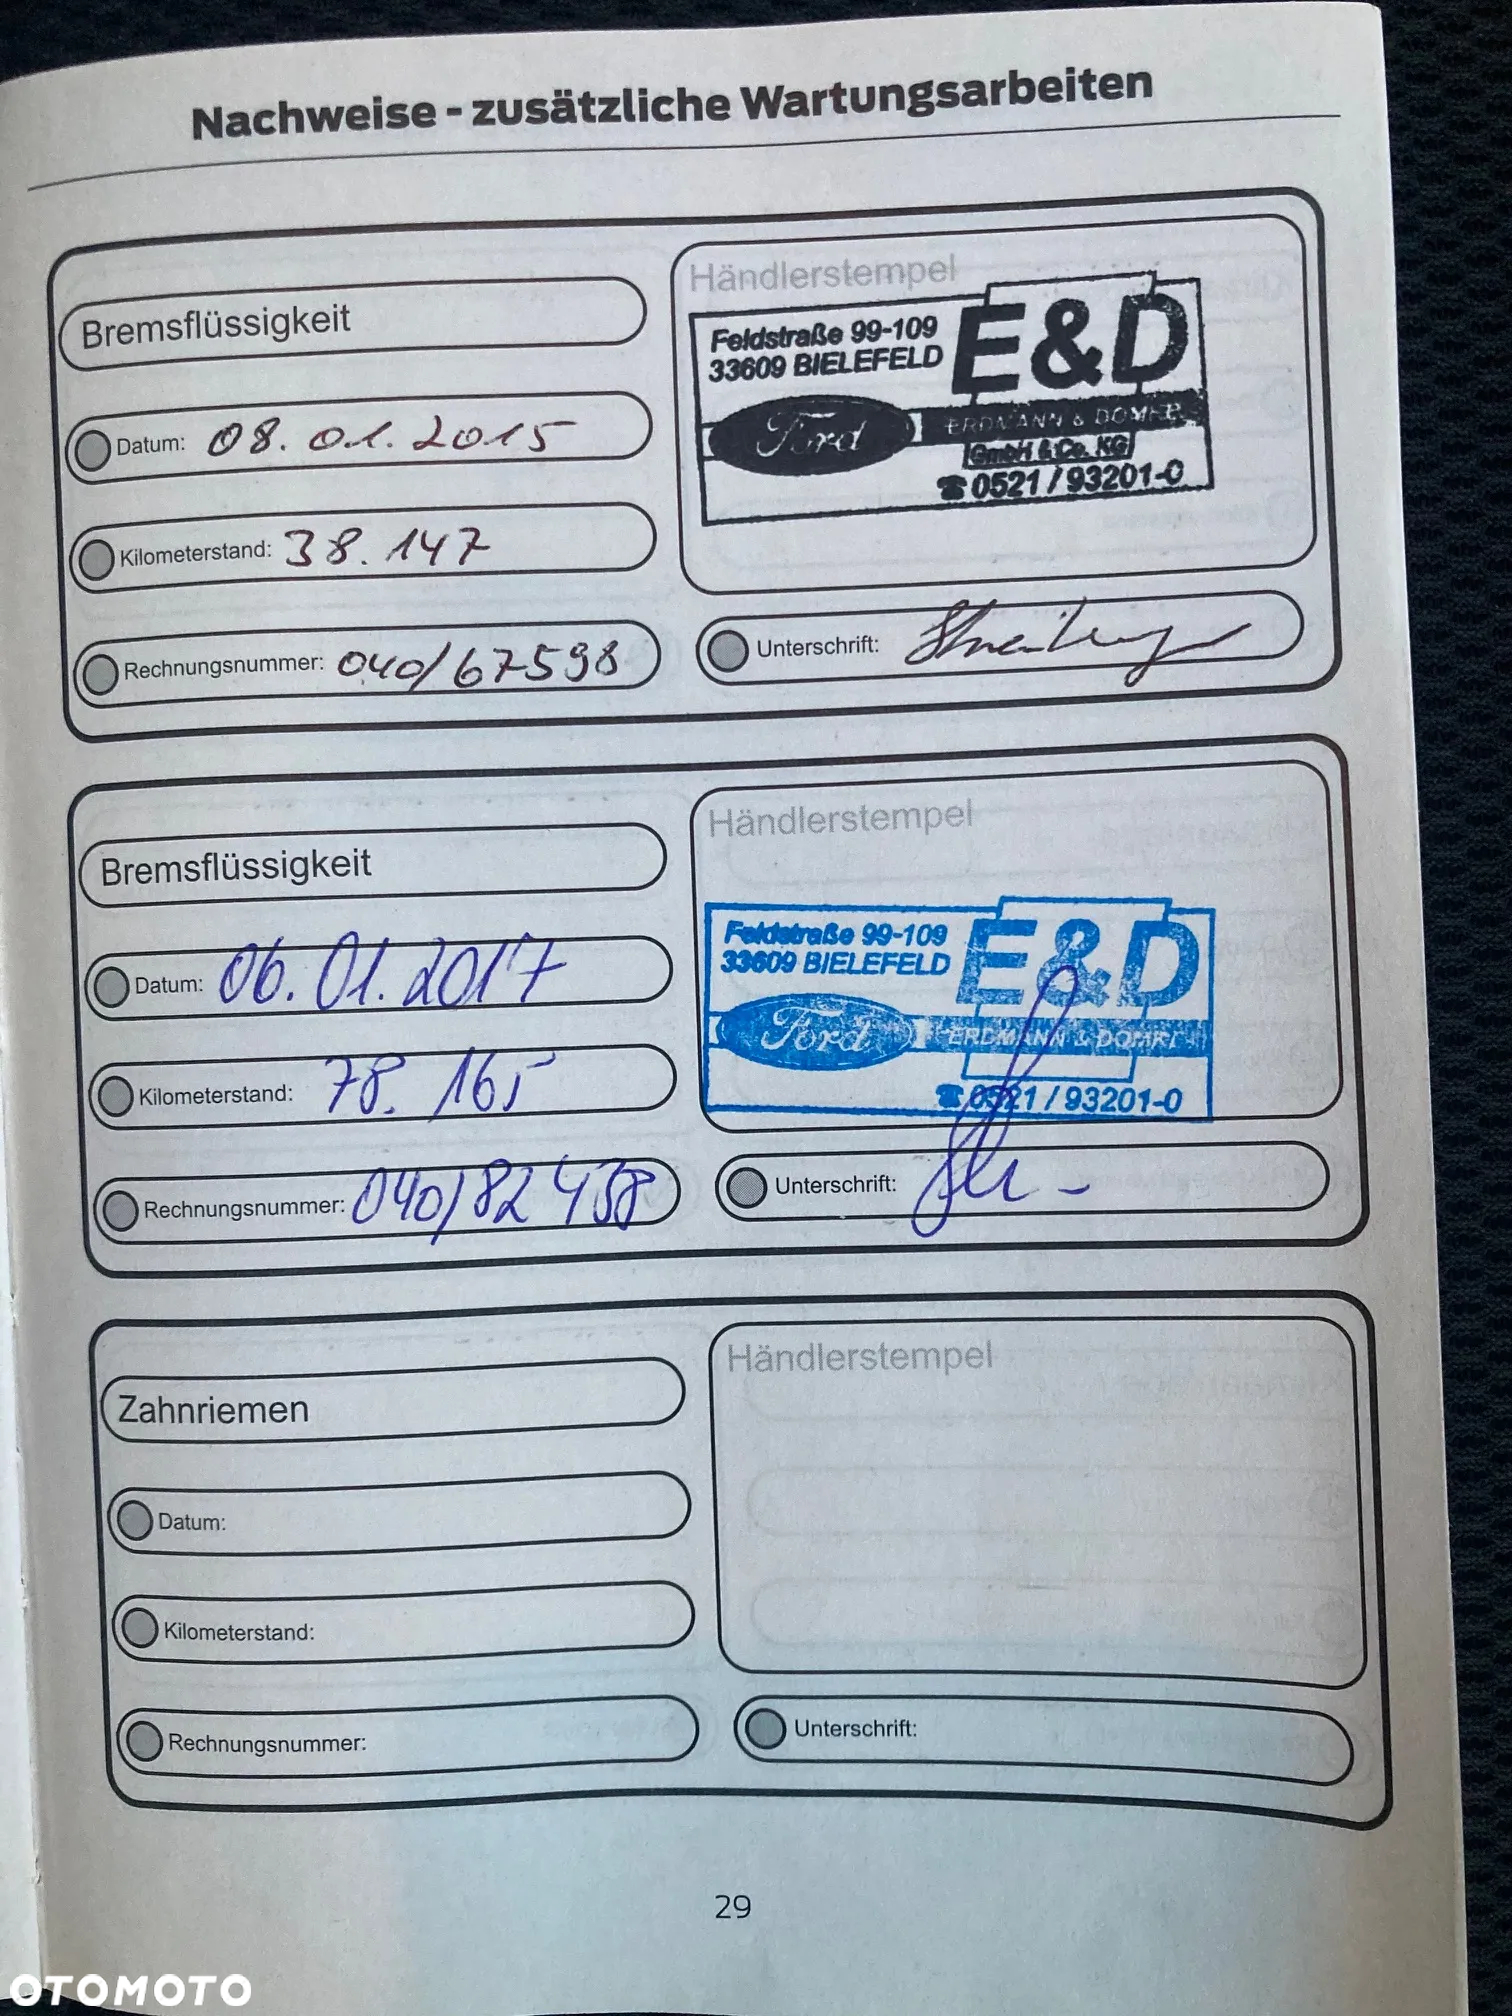 Nachweise - zusätzliche Wartungsarbeiten
Bremsflüssigkeit
Datum: 08.01.2015
Kilometerstand: 38.147
Rechnungsnummer: 040/67598
Händlerstempel
Feldstraße 99-109
33609 BIELEFELD
E&D
Ford
ERDMANN & DOMKE
GmbH & Co. KG
☎ 0521 / 93201-0
Unterschrift:
Bremsflüssigkeit
Datum: 06.01.2017
Kilometerstand: 78.165
Rechnungsnummer: 040/82458
Händlerstempel
Feldstraße 99-109
33609 BIELEFELD
E&D
Ford
ERDMANN & DOMKE
☎ 0521 / 93201-0
Unterschrift:
Zahnriemen
Datum:
Kilometerstand:
Rechnungsnummer:
Händlerstempel
Unterschrift:
29
OTOMOTO